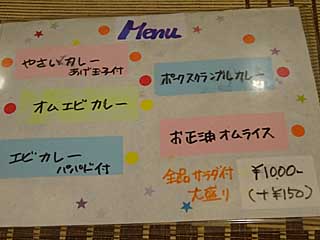 Menu
やさいカレー
あげ玉子付
ポークスクランブルカレー
オムエビカレー
お正油オムライス
エビカレー
パパド付
全品サラダ付 ¥1000-
大盛り (+¥150)